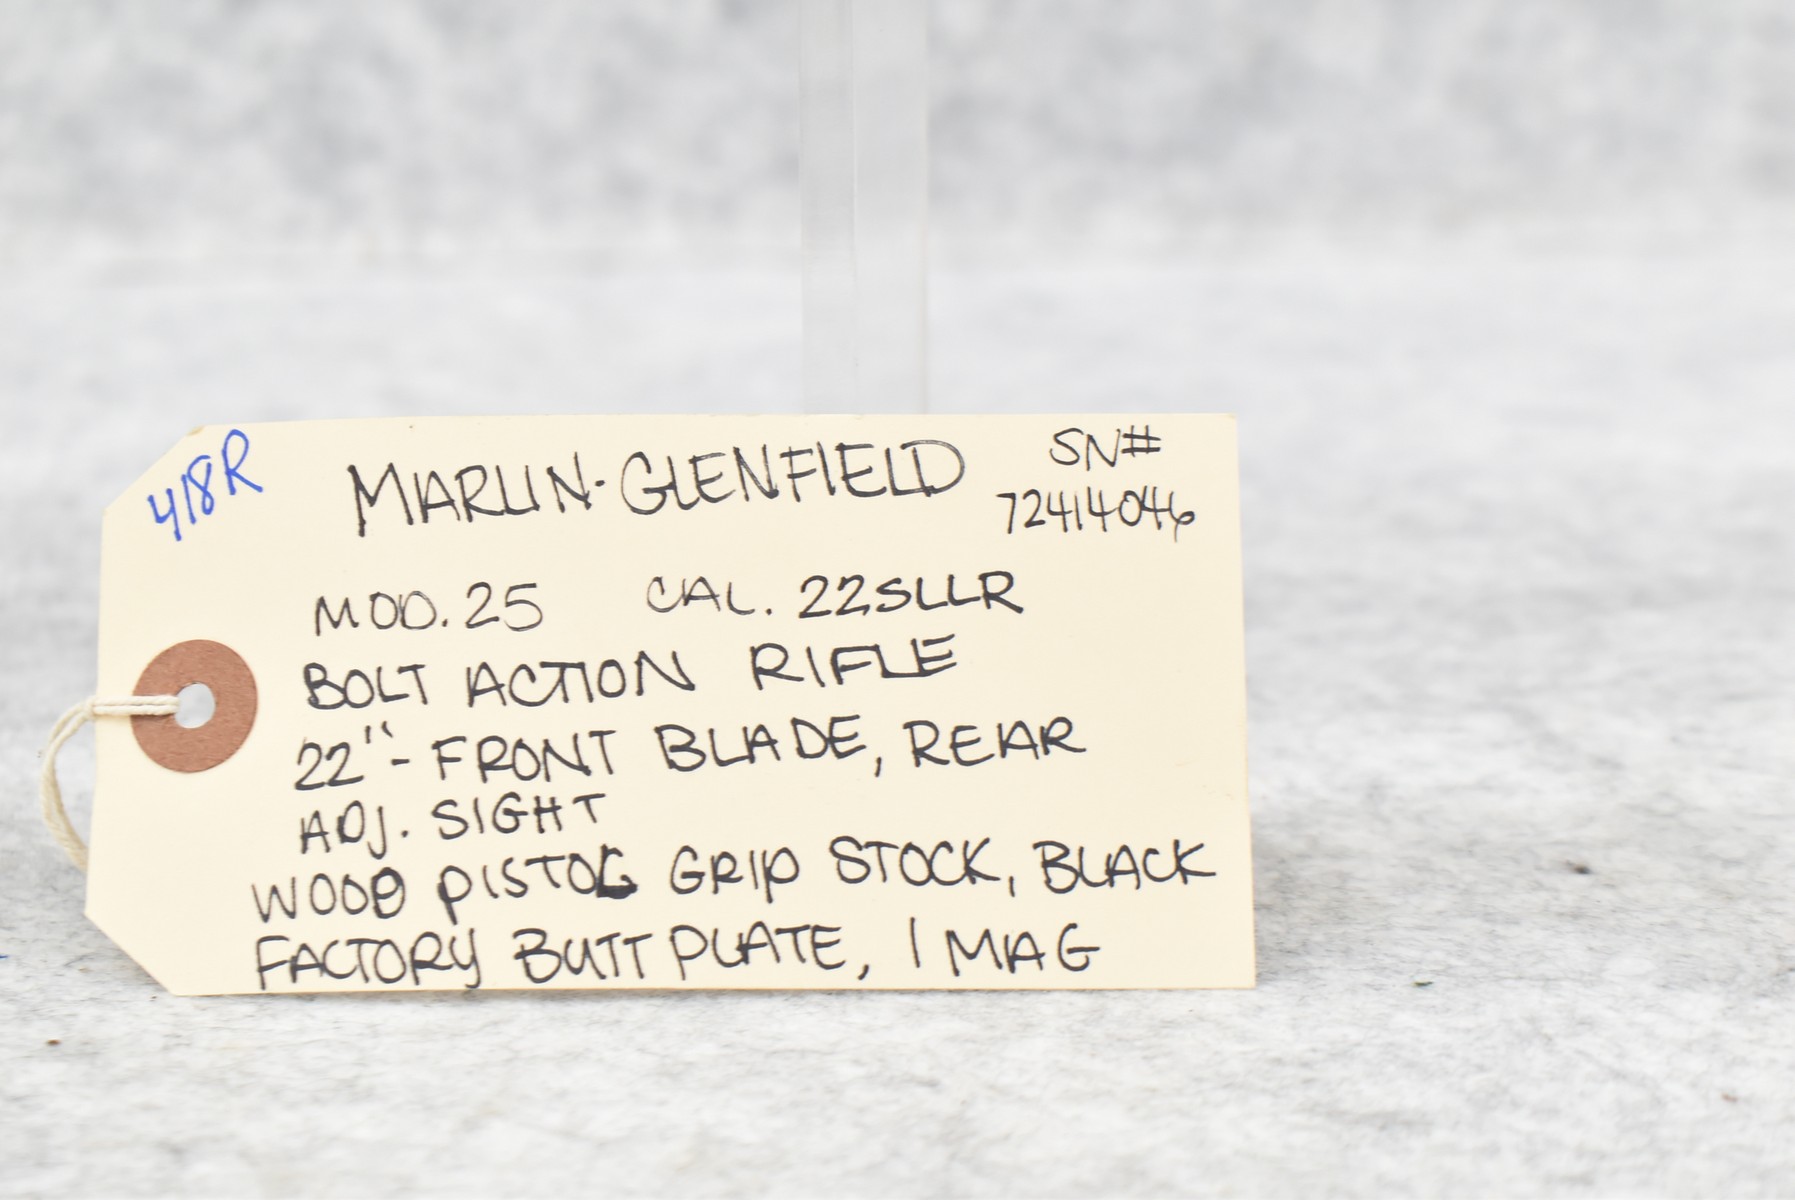 418R
MARLIN-GLENFIELD
SN#
72414046
MOD. 25 CAL. 22SLLR
BOLT ACTION RIFLE
22"- FRONT BLADE, REAR
ADJ. SIGHT
WOOD PISTOL GRIP STOCK, BLACK
FACTORY BUTT PLATE, 1 MAG